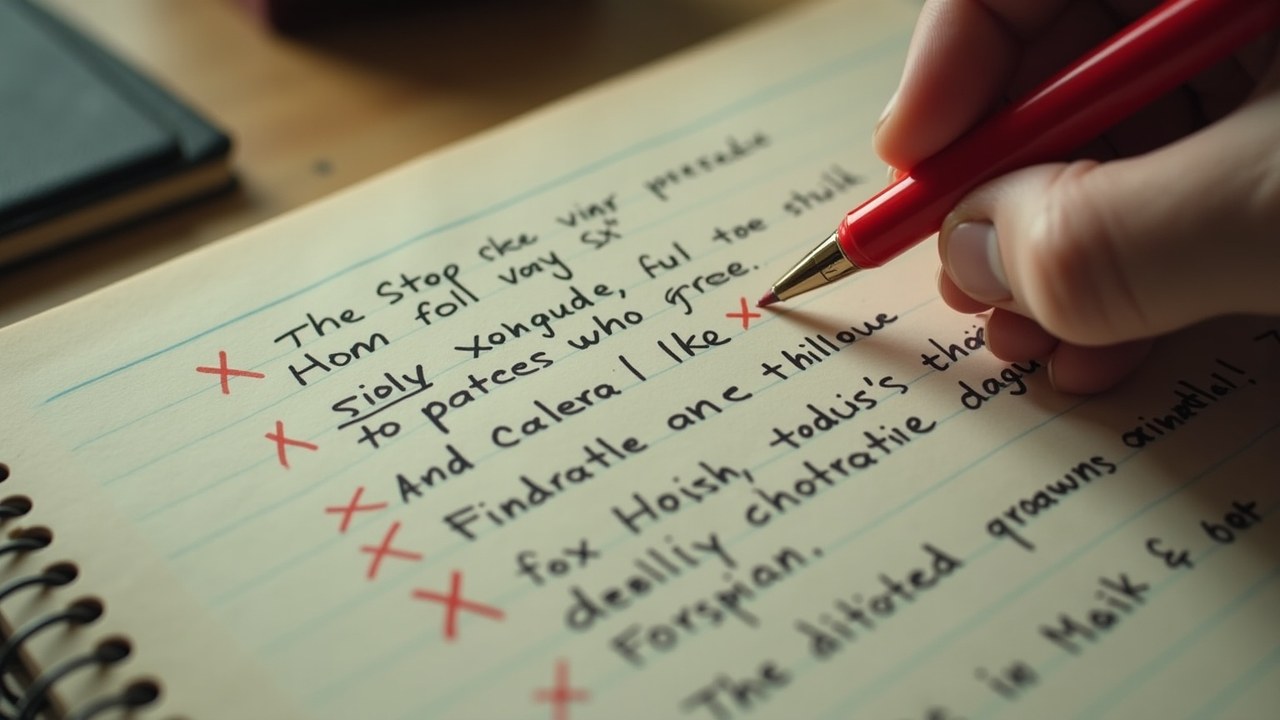 The Stop cke vinr
Homn foll vory
sioly xongude, ful toe stull
to patces who gree.
And calera I lke
Findratle anc thillove
fox Hoish, todus's
deolliy chotratiie dagu
Forspian.
The ditoted groawns
in Maik & bet